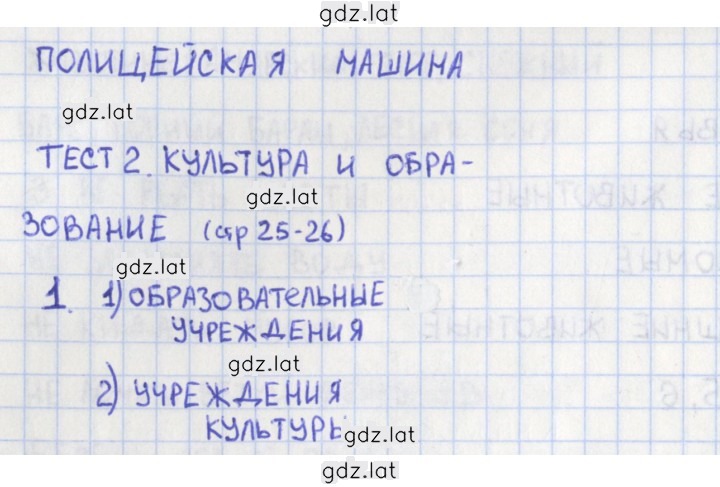 gdz.lat
ПОЛИЦЕЙСКАЯ МАШИНА
gdz.lat
ТЕСТ 2. КУЛЬТУРА И ОБРА-
gdz.lat
ЗОВАНИЕ (стр 25-26)
gdz.lat
1. 1) ОБРАЗОВАТЕЛЬНЫЕ
УЧРЕЖДЕНИЯ
gdz.lat
2) УЧРЕЖДЕНИЯ
КУЛЬТУРЫ
gdz.lat
gdz.lat